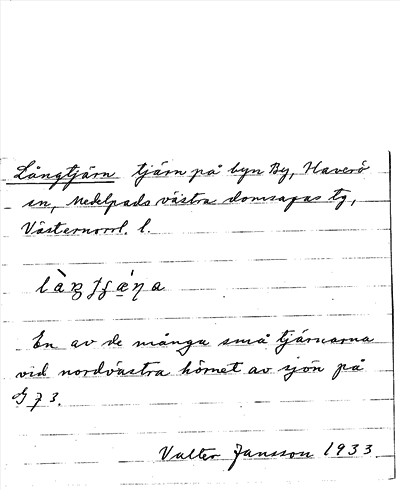 Långtjärn tjärn på byn By, Haverö
sn, Medelpads västra domsagas tg,
Västernorrl. l.
En av de många små tjärnarna
vid nordvästra hörnet av sjön på
G 73.
Valter Jansson 1933